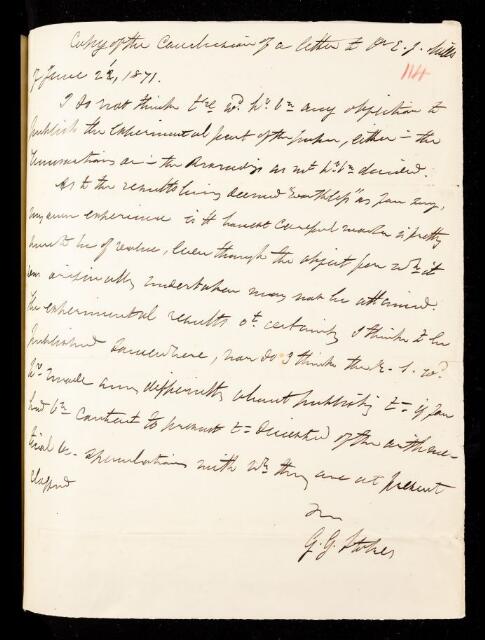 Copy of the Conclusion of a letter to Dr E. J. Mills
of June 22, 1871.
114
I do not think there wd. be any objection to
publish the experimental part of the paper, either in the
Transactions or in the Proceedings as mt be decided.
As to the results being deemed "worthless" as you say,
my own experience is that honest careful work is pretty
sure to be of value, even though the object for wh it
was originally undertaken may not be attained.
The experimental results ot. certainly I think to be
published somewhere, nor do I think the R. S. wd.
have made any difficulty about publishing them if you
had been content to present them divested of the
speculations with wh they are at present
clogged
G. G. Stokes